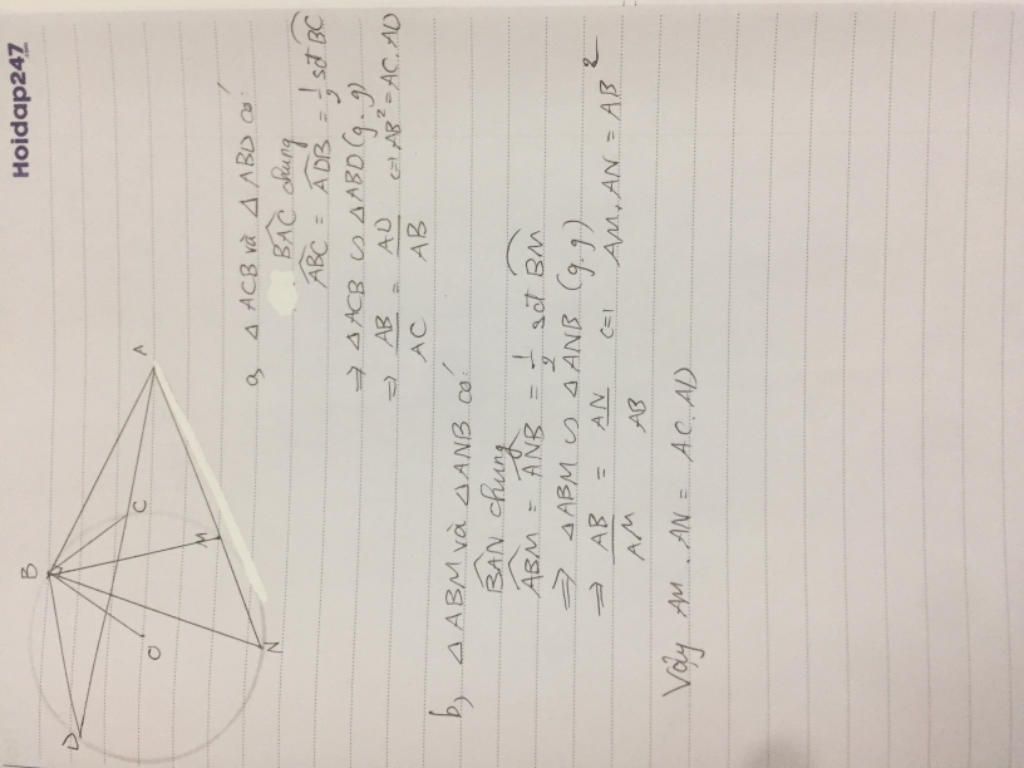 Hoidap247
B
D
O
C
A
M
N
a, Δ ACB và Δ ABD có:
BAC chung
ABC = ADB = 1/2 sđ BC
⇒ Δ ACB ∽ Δ ABD (g.g)
⇒ AB/AC = AD/AB <=> AB² = AC.AD
b, Δ ABM và Δ ANB có:
BAN chung
ABM = ANB = 1/2 sđ BM
⇒ Δ ABM ∽ Δ ANB (g.g)
⇒ AB/AM = AN/AB <=> AM.AN = AB²
Vậy AM.AN = AC.AD